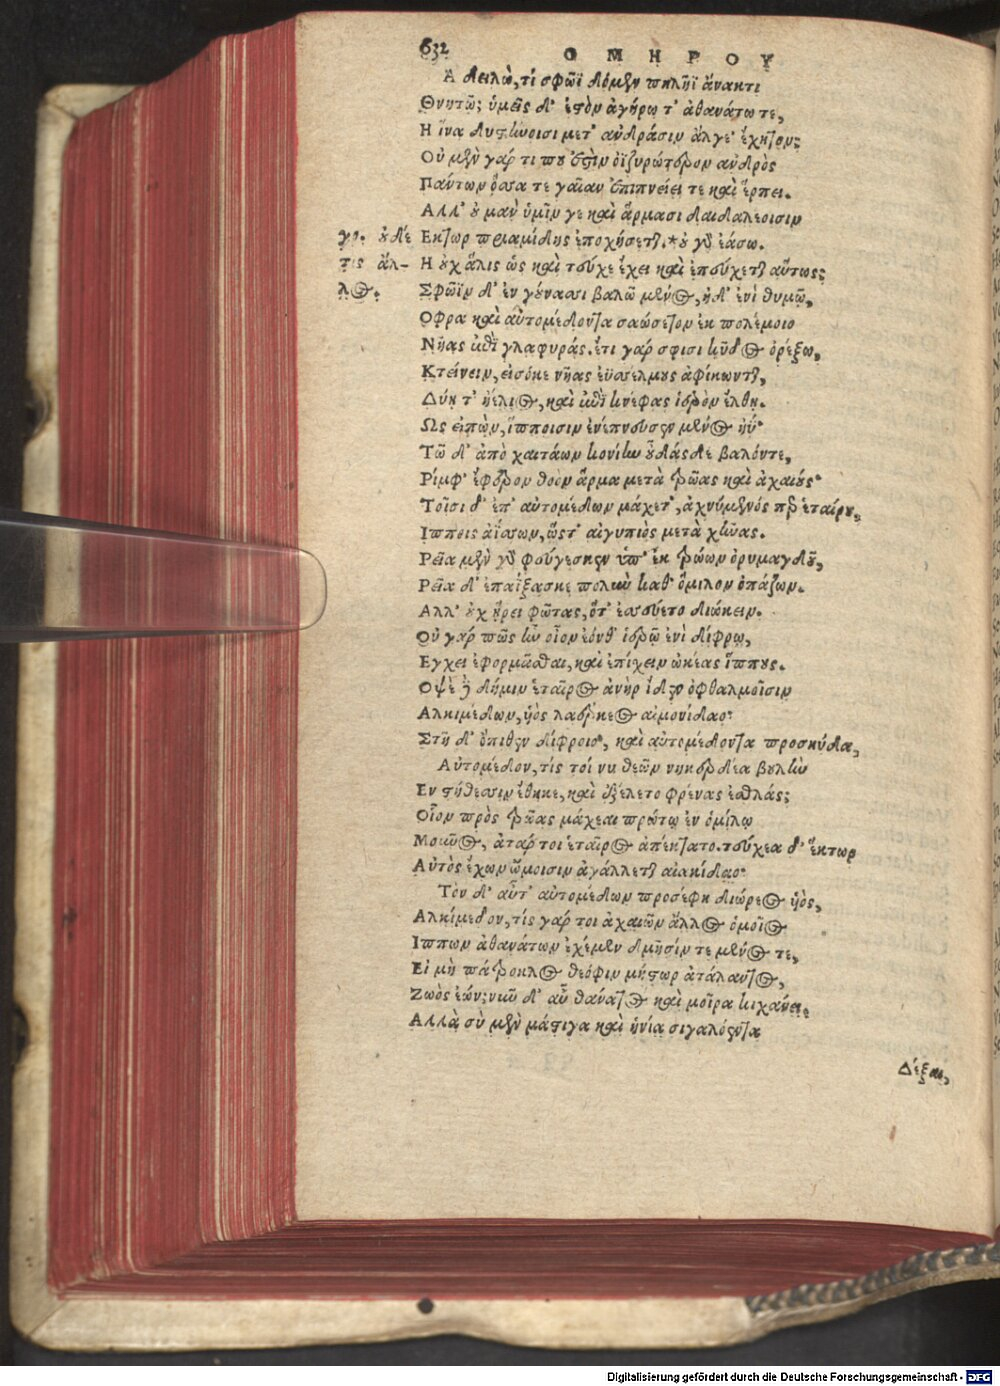 632
ΟΜΗΡΟΥ
Α δειλὼ, τί σφῶϊ δόμεν πηλῆϊ ἄνακτι
Θνητῷ; ὑμεῖς δ' ἐςὸν ἀγήρω τ' ἀθανάτω τε,
Η ἵνα δυςήνοισι μετ' ἀνδράσιν ἄλγε' ἔχητον;
Οὐ μὲν γάρ τι που ἐςὶν ὀϊζυρώτερον ἀνδρὸς
Πάντων ὅσσα τε γαῖαν ἐπιπνείει τε καὶ ἕρπει.
Αλλ' οὐ μὰν ὑμῖν γε καὶ ἅρμασι δαιδαλέοισιν
γρ. οὐδέ
Εκτωρ πριαμίδης ἐποχήσεται.*οὐ γὰρ ἐάσω.
τις ἄλ-
Η οὐχ ἅλις ὡς καὶ τεύχε' ἔχει καὶ ἐπεύχεται αὔτως;
λος.
Σφῶϊν δ' ἐν γούνεσσι βαλῶ μένος, ἠδ' ἐνὶ θυμῷ,
Οφρα καὶ αὐτομέδοντα σαώσετον ἐκ πολέμοιο
Νῆας ἐπὶ γλαφυράς. ἔτι γάρ σφισι κῦδος ὀρέξω,
Κτείνειν, εἰσόκε νῆας ἐϋσσέλμους ἀφίκωνται,
Δύῃ τ' ἠέλιος, καὶ ἐπὶ κνέφας ἱερὸν ἔλθῃ.
Ως εἰπὼν, ἵπποισιν ἐνέπνευσεν μένος ἠΰ·
Τὼ δ' ἀπὸ χαιτάων κονίην οὖδάσδε βαλόντε,
Ρίμφ' ἔφερον θοὸν ἅρμα μετὰ τρῶας καὶ ἀχαιούς·
Τοῖσι δ' ἐπ' αὐτομέδων μάχετ', ἀχνύμενός περ ἑταίρου,
Ιπποις ἀΐσσων, ὥςτ' αἰγυπιὸς μετὰ χῆνας.
Ρεῖα μὲν γὰρ φεύγεσκεν ὑπ' ἐκ τρώων ὀρυμαγδοῦ,
Ρεῖα δ' ἐπαΐξασκε πολὺν καθ' ὅμιλον ὀπάζων.
Αλλ' οὐχ ᾕρει φῶτας, ὅτ' ἐσσεύετο διώκειν.
Οὐ γάρ πως ἦν οἶον ἐόνθ' ἱερῷ ἐνὶ δίφρῳ,
Εγχει ἐφορμᾶσθαι, καὶ ἐπίχειν ὠκέας ἵππους.
Οψὲ δὲ δή μιν ἑταῖρος ἀνὴρ ἴδεν ὀφθαλμοῖσιν
Αλκιμέδων, υἱὸς λαέρκεος αἱμονίδαο·
Στῆ δ' ὄπιθεν δίφροιο, καὶ αὐτομέδοντα προσηύδα,
Αὐτόμεδον, τίς τοί νυ θεῶν νηκερδέα βουλὴν
Εν ςήθεσσιν ἔθηκε, καὶ ἐξέλετο φρένας ἐσθλάς;
Οἷον πρὸς τρῶας μάχεαι πρώτῳ ἐν ὁμίλῳ
Μοῦνος, ἀτάρ τοι ἑταῖρος ἀπέκτατο. τεύχεα δ' ἕκτωρ
Αὐτὸς ἔχων ὤμοισιν ἀγάλλεται αἰακίδαο·
Τὸν δ' αὖτ' αὐτομέδων προσέφη διώρεος υἱὸς,
Αλκίμεδον, τίς γάρ τοι ἀχαιῶν ἄλλος ὁμοῖος
Ιππων ἀθανάτων ἐχέμεν δμῆσίν τε μένος τε,
Εἰ μὴ πάτροκλος θεόφιν μήςωρ ἀτάλαντος,
Ζωὸς ἐών; νῦν δ' αὖ θάνατος καὶ μοῖρα κιχάνει.
Αλλὰ σὺ μὲν μάςιγα καὶ ἡνία σιγαλόεντα
Δέξαι,
Digitalisierung gefördert durch die Deutsche Forschungsgemeinschaft - DFG